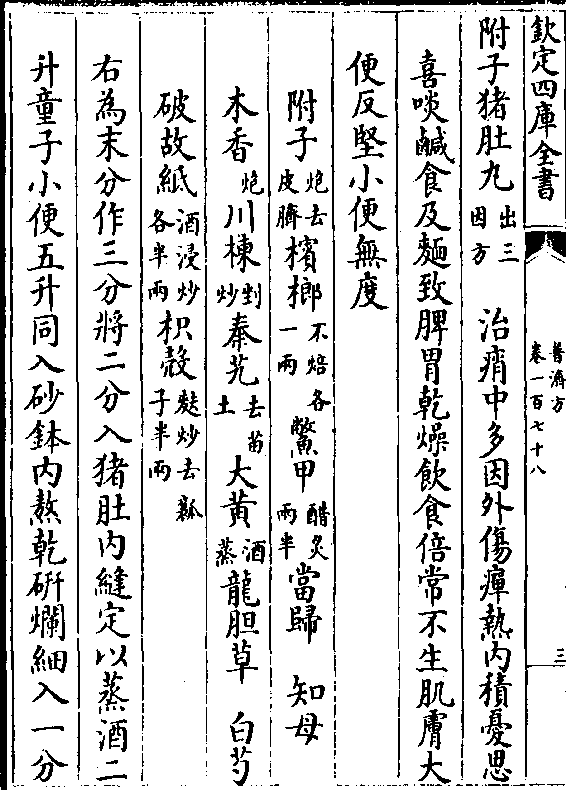 欽定四庫全書
普濟方
卷一百七十八
三
附子猪肚丸出三因方 治痟中多因外傷癉熱内積憂思
喜啖鹹食及麵致脾胃乾燥飲食倍常不生肌膚大
便反堅小便無度
附子炮去皮臍 檳榔不焙各一兩 鱉甲醋炙兩半 當歸 知母
木香炮 川楝剉炒 秦艽去苗土 大黃酒蒸 龍胆草 白芍
破故紙酒浸炒各半兩 枳殻麩炒去瓤子半兩
右為末分作三分將二分入猪肚内縫定以蒸酒二
升童子小便五升同入砂鉢内熬乾研爛細入一分